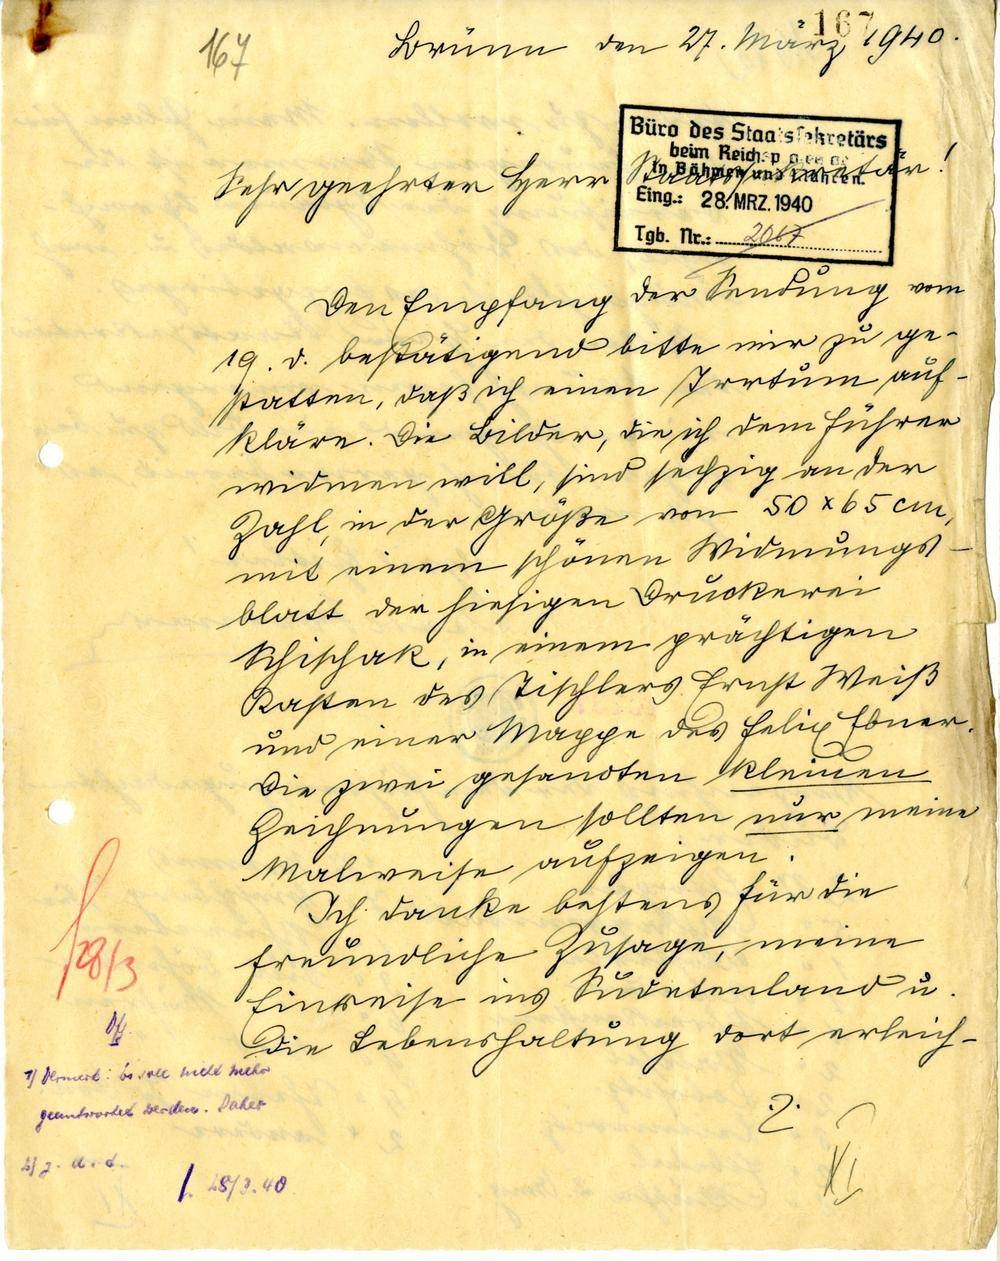 167
167
Brünn den 27. März 1940.
Büro des Staatssekretärs
beim Reichsp
in Böhmen und Mähren.
Eing.: 28. MRZ. 1940
Tgb. Nr.: 2067
Sehr geehrter Herr Staatssekretär!
Den Empfang der Sendung vom
19. d. bestätigend bitte mir zu ge-
statten, daß ich einen Irrtum auf-
kläre. Die Bilder, die ich dem Führer
widmen will, sind sechzig an der
Zahl, in der Größe von 50 x 65 cm,
mit einem schönen Widmungs-
blatt der hiesigen Druckerei
Schischak, in einem prächtigen
Kasten des Tischlers Ernst Weiß
und einer Mappe des Felix Ebner.
Die zwei gesandten kleinen
Zeichnungen sollten nur meine
Malweise aufzeigen.
Ich danke bestens für die
freundliche Zusage, meine
Einreise ins Sudetenland u.
die Lebenshaltung dort erleich-
28/3
1) Vermerk: Es soll nicht mehr
geantwortet werden. Daher
2) z. d. A.
28/3.40
XI